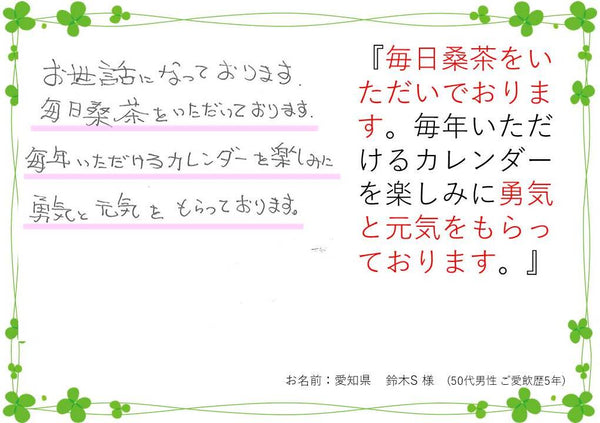 お世話になっております.
毎日桑茶をいただいております.
毎年いただけるカレンダーを楽しみに
勇気と元気をもらっております。
『毎日桑茶をい
ただいでおりま
す。毎年いただ
けるカレンダー
を楽しみに勇気
と元気をもらっ
ております。』
お名前：愛知県　鈴木S 様　(50代男性 ご愛飲歴5年)